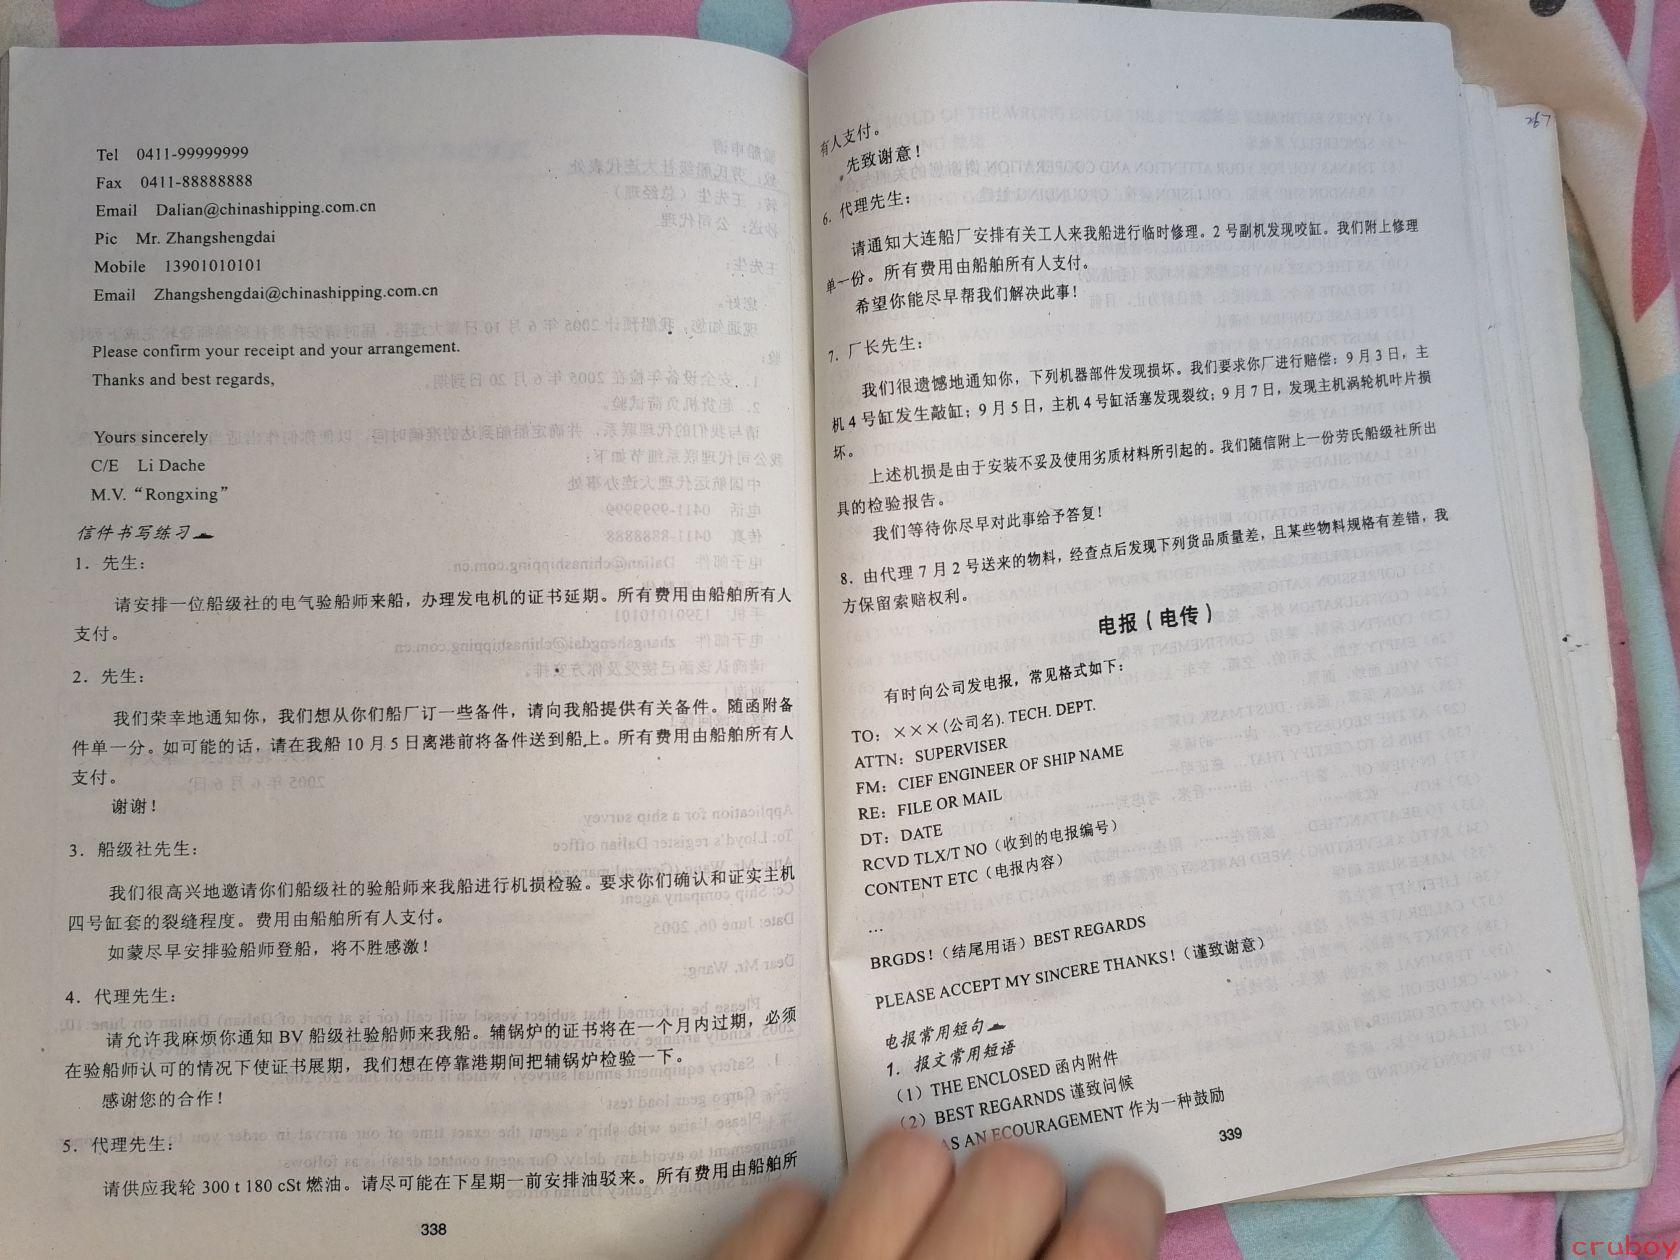 Tel 0411-99999999
Fax 0411-88888888
Email Dalian@chinashipping.com.cn
Pic Mr. Zhangshengdai
Mobile 13901010101
Email Zhangshengdai@chinashipping.com.cn
Please confirm your receipt and your arrangement.
Thanks and best regards,
Yours sincerely
C/E Li Dache
M.V. “Rongxing”
信件书写练习
1. 先生：
请安排一位船级社的电气验船师来船，办理发电机的证书延期。所有费用由船舶所有人
支付。
2. 先生：
我们荣幸地通知你，我们想从你们船厂订一些备件，请向我船提供有关备件。随函附备
件单一分。如可能的话，请在我船 10 月 5 日离港前将备件送到船上。所有费用由船舶所有人
支付。
谢谢！
3. 船级社先生：
我们很高兴地邀请你们船级社的验船师来我船进行机损检验。要求你们确认和证实主机
四号缸套的裂缝程度。费用由船舶所有人支付。
如蒙尽早安排验船师登船，将不胜感激！
4. 代理先生：
请允许我麻烦你通知 BV 船级社验船师来我船。辅锅炉的证书将在一个月内过期，必须
在验船师认可的情况下使证书展期，我们想在停靠港期间把辅锅炉检验一下。
感谢您的合作！
5. 代理先生：
请供应我轮 300 t 180 cSt 燃油。请尽可能在下星期一前安排油驳来。所有费用由船舶所
338
有人支付。
先致谢意！
6. 代理先生：
请通知大连船厂安排有关工人来我船进行临时修理。2 号副机发现咬缸。我们附上修理
单一份。所有费用由船舶所有人支付。
希望你能尽早帮我们解决此事！
7. 厂长先生：
我们很遗憾地通知你，下列机器部件发现损坏。我们要求你厂进行赔偿：9 月 3 日，主
机 4 号缸发生敲缸；9 月 5 日，主机 4 号缸活塞发现裂纹；9 月 7 日，发现主机涡轮机叶片损
坏。
上述机损是由于安装不妥及使用劣质材料所引起的。我们随信附上一份劳氏船级社所出
具的检验报告。
我们等待你尽早对此事给予答复！
8. 由代理 7 月 2 号送来的物料，经查点后发现下列货品质量差，且某些物料规格有差错，我
方保留索赔权利。
电报（电传）
有时向公司发电报，常见格式如下：
TO：×××(公司名). TECH. DEPT.
ATTN：SUPERVISER
FM：CIEF ENGINEER OF SHIP NAME
RE：FILE OR MAIL
DT：DATE
RCVD TLX/T NO（收到的电报编号）
CONTENT ETC（电报内容）
…
BRGDS！（结尾用语）BEST REGARDS
PLEASE ACCEPT MY SINCERE THANKS！（谨致谢意）
电报常用短句
1. 报文常用短语
（1）THE ENCLOSED 函内附件
（2）BEST REGARNDS 谨致问候
AS AN ECOURAGEMENT 作为一种鼓励
339
267
cruboy